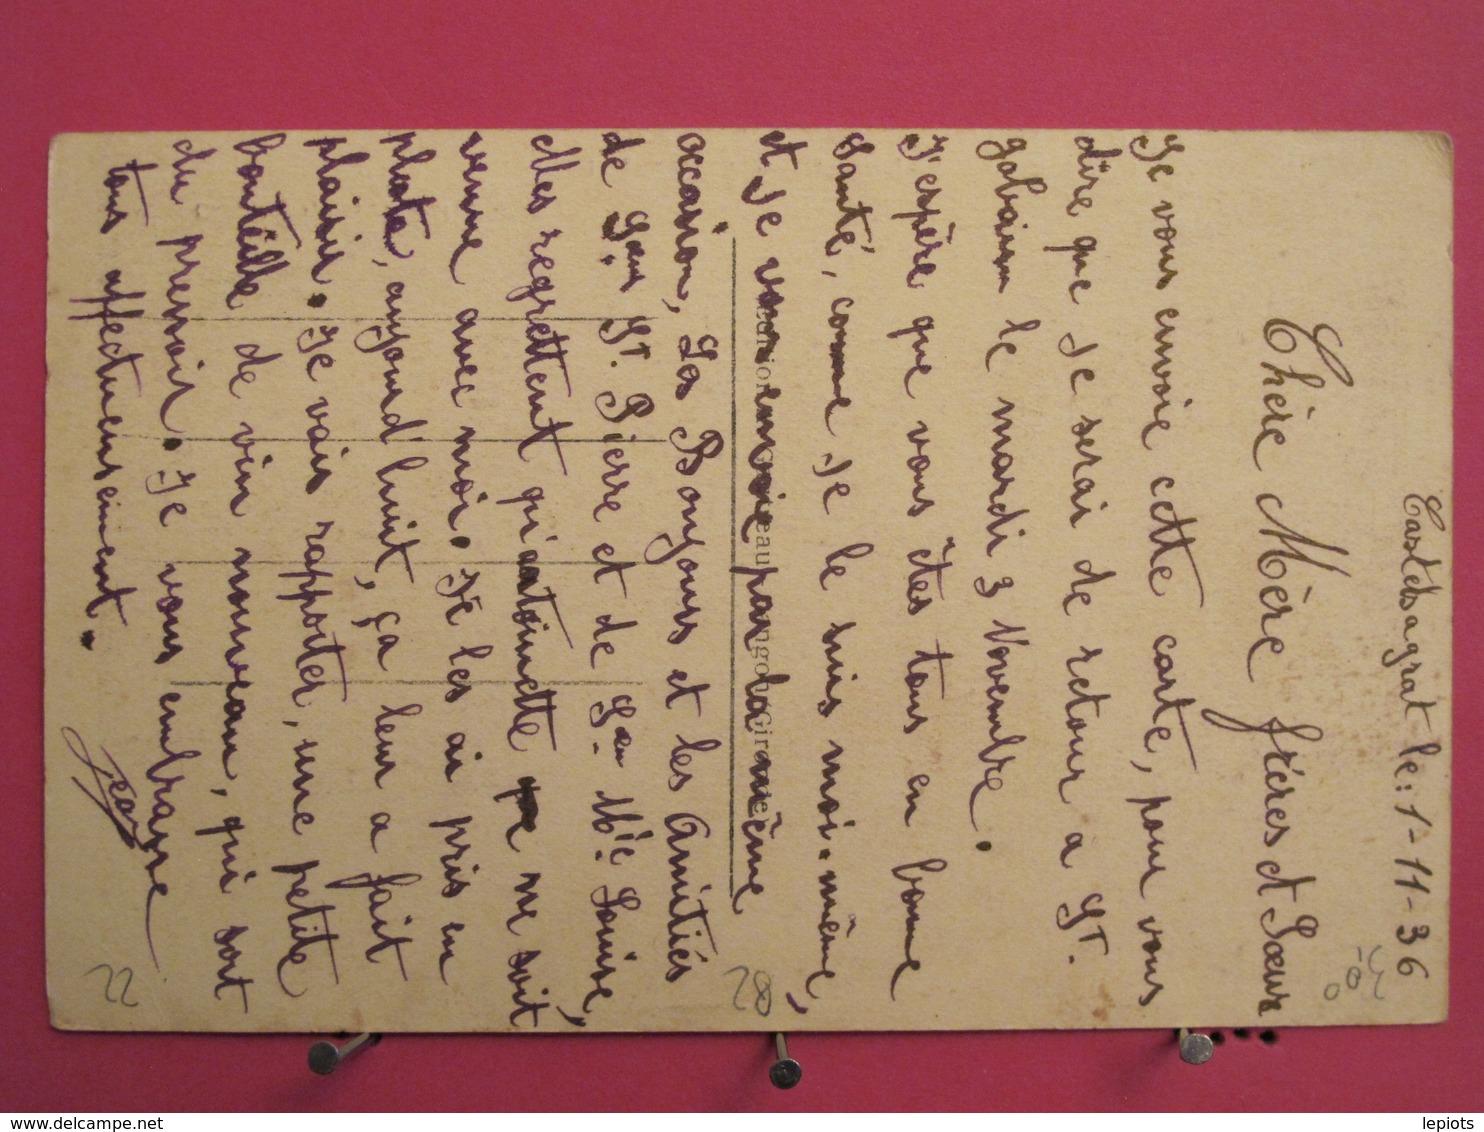 Castelsagrat le: 1-11-36
Chère Mère frères et Sœurs
Je vous envoie cette carte, pour vous
dire que je serai de retour a St.
gobain le mardi 3 Novembre.
J'espère que vous êtes tous en bonne
Santé, comme je le suis moi-même,
et je vous envoie par la même
occasion, Les Bonjours et les Amitiés
de Sœur St. Pierre et de Sœur Mie Louise,
elles regrettent qu'antoinette ne soit
venue avec moi. Je les ai pris en
photo, aujourd'huit, ça leur a fait
plaisir. Je vais rapporter, une petite
bouteille de vin nouveau, qui sort
du pressoir. Je vous embrasse
tous affectueusement.
Jean
22
28
lepiots